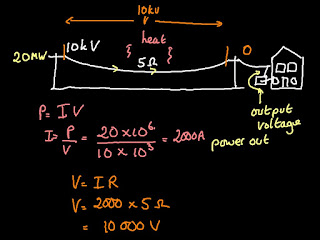 10kV
10kV { heat } 0
20MW 5Ω
output
voltage
power out
P = I V
I = P/V = 20 × 10⁶ / 10 × 10³ = 2000A
V = I R
V = 2000 × 5 Ω
= 10 000 V